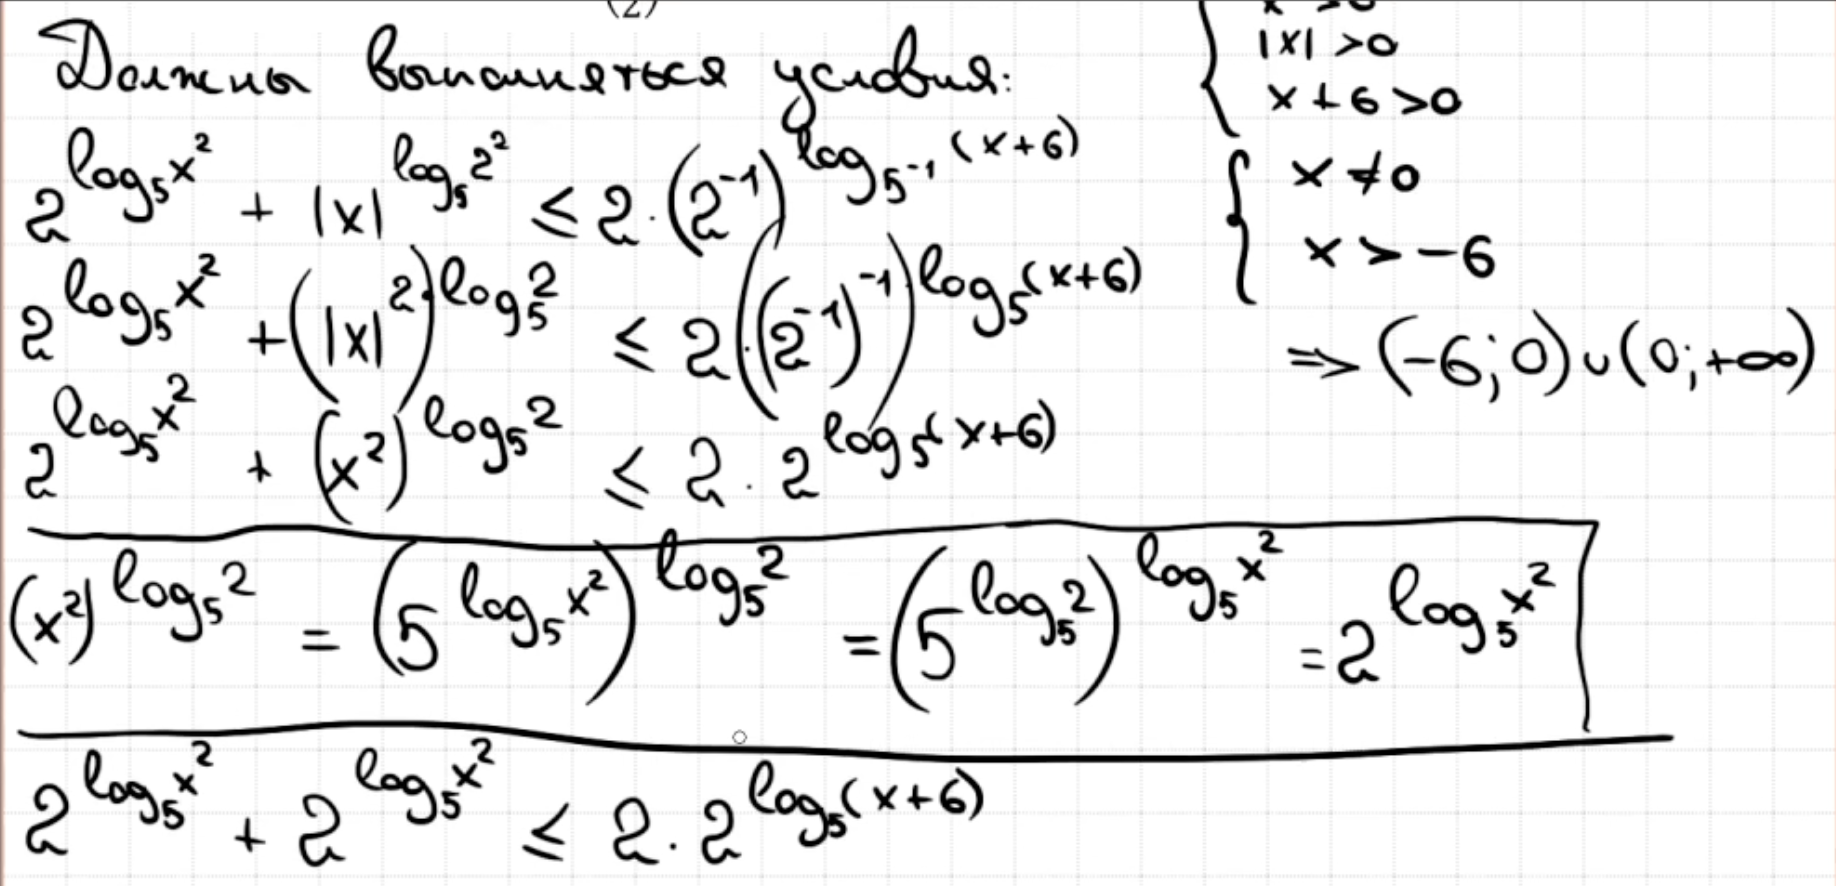 (2)
Должны выполняться условия:
x > 0
|x| > 0
x + 6 > 0
x ≠ 0
x > -6
=> (-6; 0) ∪ (0; +∞)
2^{log_5 x^2} + |x|^{log_5 2^2} ≤ 2 · (2^{-1})^{log_{5^{-1}} (x+6)}
2^{log_5 x^2} + (|x|^2)^{log_5 2} ≤ 2 · ((2^{-1})^{-1})^{log_5 (x+6)}
2^{log_5 x^2} + (x^2)^{log_5 2} ≤ 2 · 2^{log_5 (x+6)}
(x^2)^{log_5 2} = (5^{log_5 x^2})^{log_5 2} = (5^{log_5 2})^{log_5 x^2} = 2^{log_5 x^2}
2^{log_5 x^2} + 2^{log_5 x^2} ≤ 2 · 2^{log_5 (x+6)}